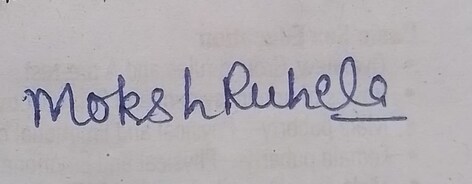 Moksh Ruhela